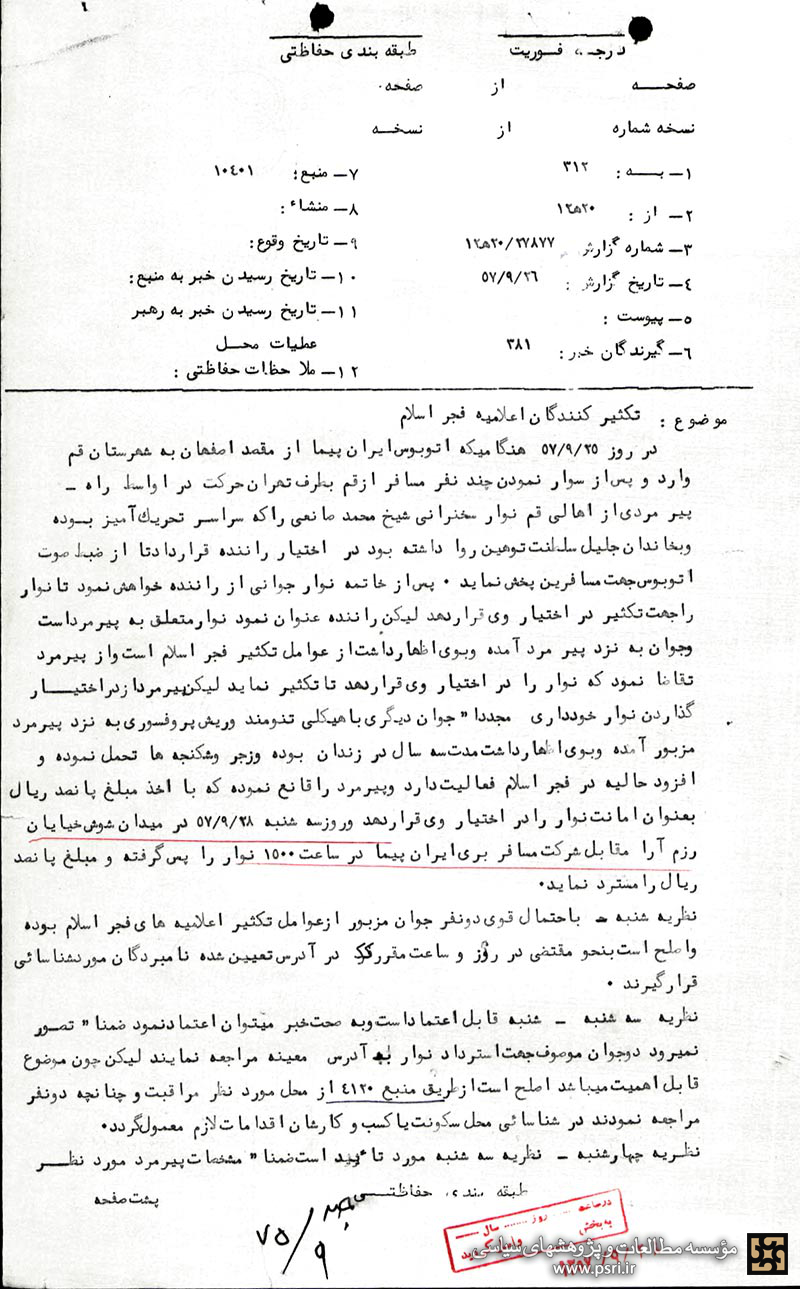 ۱
درجه فوریت
طبقه بندی حفاظتی
صفحه از صفحه
نسخه شماره از نسخه
۱ــ بــه : ۳۱۲
۲ــ از : ۲۰ﻫ۱۲
۳ــ شماره گزارش ۲۰/۲۷۸۷۷ﻫ۱۲
۴ــ تاریخ گزارش : ۵۷/۹/۲۶
۵ــ پیوست :
۶ــ گیرندگان خبر : ۳۸۱
۷ــ منبع : ۱۰۴۰۱
۸ــ منشاء :
۹ــ تاریخ وقوع:
۱۰ــ تاریخ رسیدن خبر به منبع:
۱۱ــ تاریخ رسیدن خبر به رهبر
عملیات محـل
۱۲ــ ملاحظات حفاظتی :
موضوع : تکثیر کنندگان اعلامیه فجر اسلام
در روز ۵۷/۹/۲۵ هنگامیکه اتوبوس ایران پیما از مقصد اصفهان به شهرستان قم
وارد و پس از سوار نمودن چند نفر مسافر از قم بطرف تهران حرکت در اواسط راه ــ
پیر مردی از اهالی قم نوار سخنرانی شیخ محمد صانعی را که سراسر تحریک آمیز بوده
و بخاندان جلیل سلطنت توهین روا داشته بود در اختیار راننده قرار داد تا از ضبط صوت
اتوبوس جهت مسافرین پخش نماید ۰ پس از خاتمه نوار جوانی از راننده خواهش نمود تا نوار
را جهت تکثیر در اختیار وی قرار دهد لیکن راننده عنوان نمود نوار متعلق به پیر مرد است
و جوان به نزد پیر مرد آمده و بوی اظهار داشت از عوامل تکثیر فجر اسلام است و از پیر مرد
تقاضا نمود که نوار را در اختیار وی قرار دهد تا تکثیر نماید لیکن پیر مرد از در اختیـار
گذاردن نوار خودداری مجددا" جوان دیگری با هیکلی تنومند و ریش پروفسوری به نزد پیر مرد
مزبور آمده و بوی اظهار داشت مدت سه سال در زندان بوده و زجر و شکنجه ها تحمل نموده و
افزود حالیه در فجر اسلام فعالیت دارد و پیر مرد را قانع نموده که با اخذ مبلغ پانصد ریال
بعنوان امانت نوار را در اختیار وی قرار دهد و روز سه شنبه ۵۷/۹/۲۸ در میدان شوش خیابان
رزم آرا مقابل شرکت مسافر بری ایران پیما در ساعت ۱۵۰۰ نوار را پس گرفته و مبلغ پانصد
ریال را مسترد نماید۰
نظریه شنبه ــ باحتمال قوی دو نفر جوان مزبور از عوامل تکثیر اعلامیه های فجر اسلام بوده
و اصلح است بنحو مقتضی در روز و ساعت مقرر در آدرس تعیین شده نامبردگان مورد شناسائی
قرار گیرند ۰
نظریه سه شنبه ــ شنبه قابل اعتماد است و به صحت خبر میتوان اعتماد نمود ضمنا" تصور
نمیرود دو جوان موصوف جهت استرداد نوار به آدرس معینه مراجعه نمایند لیکن چون موضوع
قابل اهمیت میباشد اصلح است از طریق منبع ۴۱۲۰ از محل مورد نظر مراقبت و چنانچه دو نفر
مراجعه نمودند در شناسائی محل سکونت یا کسب و کارشان اقدامات لازم معمول گردد۰
نظریه چهارشنبه ــ نظریه سه شنبه مورد تائید است ضمنا" مشخصات پیر مرد مورد نظـر
طبقه بندی حفاظتـی
پشت صفحه
۷۵/۹
در ساعت ....... روز ....... سال
به بخش
وارد گردید
مؤسسه مطالعات و پژوهشهای سیاسی
www.psri.ir